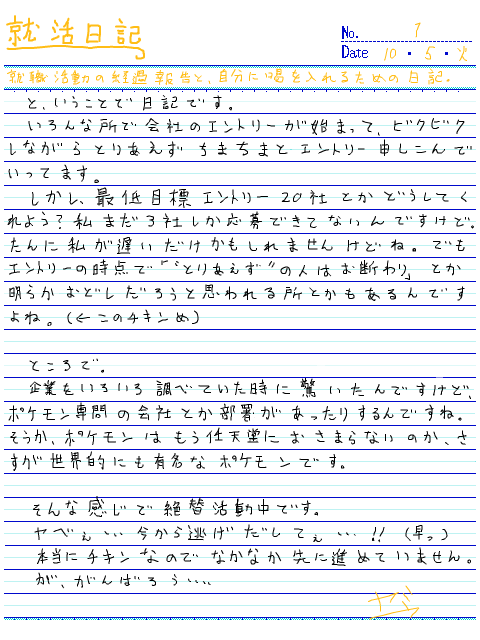 就活日記
No. 1
Date 10・5・火
就職活動の経過報告と、自分に喝を入れるための日記。
と、いうことで日記です。
いろんな所で会社のエントリーが始まって、ビクビク
しながらとりあえずちまちまとエントリー申しこんで
いってます。
しかし、最低目標エントリー20社とかどうしてく
れよう?私まだ3社しか応募できてないんですけど。
たんに私が遅いだけかもしれませんけどね。でも
エントリーの時点で「“とりあえず”の人はお断わり」とか
明らかおどしだろうと思われる所とかもあるんです
よね。(←このチキンめ)
ところで。
企業をいろいろ調べていた時に驚いたんですけど、
ポケモン専門の会社とか部署があったりするんですね。
そうか、ポケモンはもう任天堂におさまらないのか、さ
すが世界的にも有名なポケモンです。
そんな感じで絶賛活動中です。
ヤベぇ…今から逃げだしてぇ…!!(早っ)
本当にチキンなのでなかなか先に進めていません。
が、がんばろう…
ヤミ